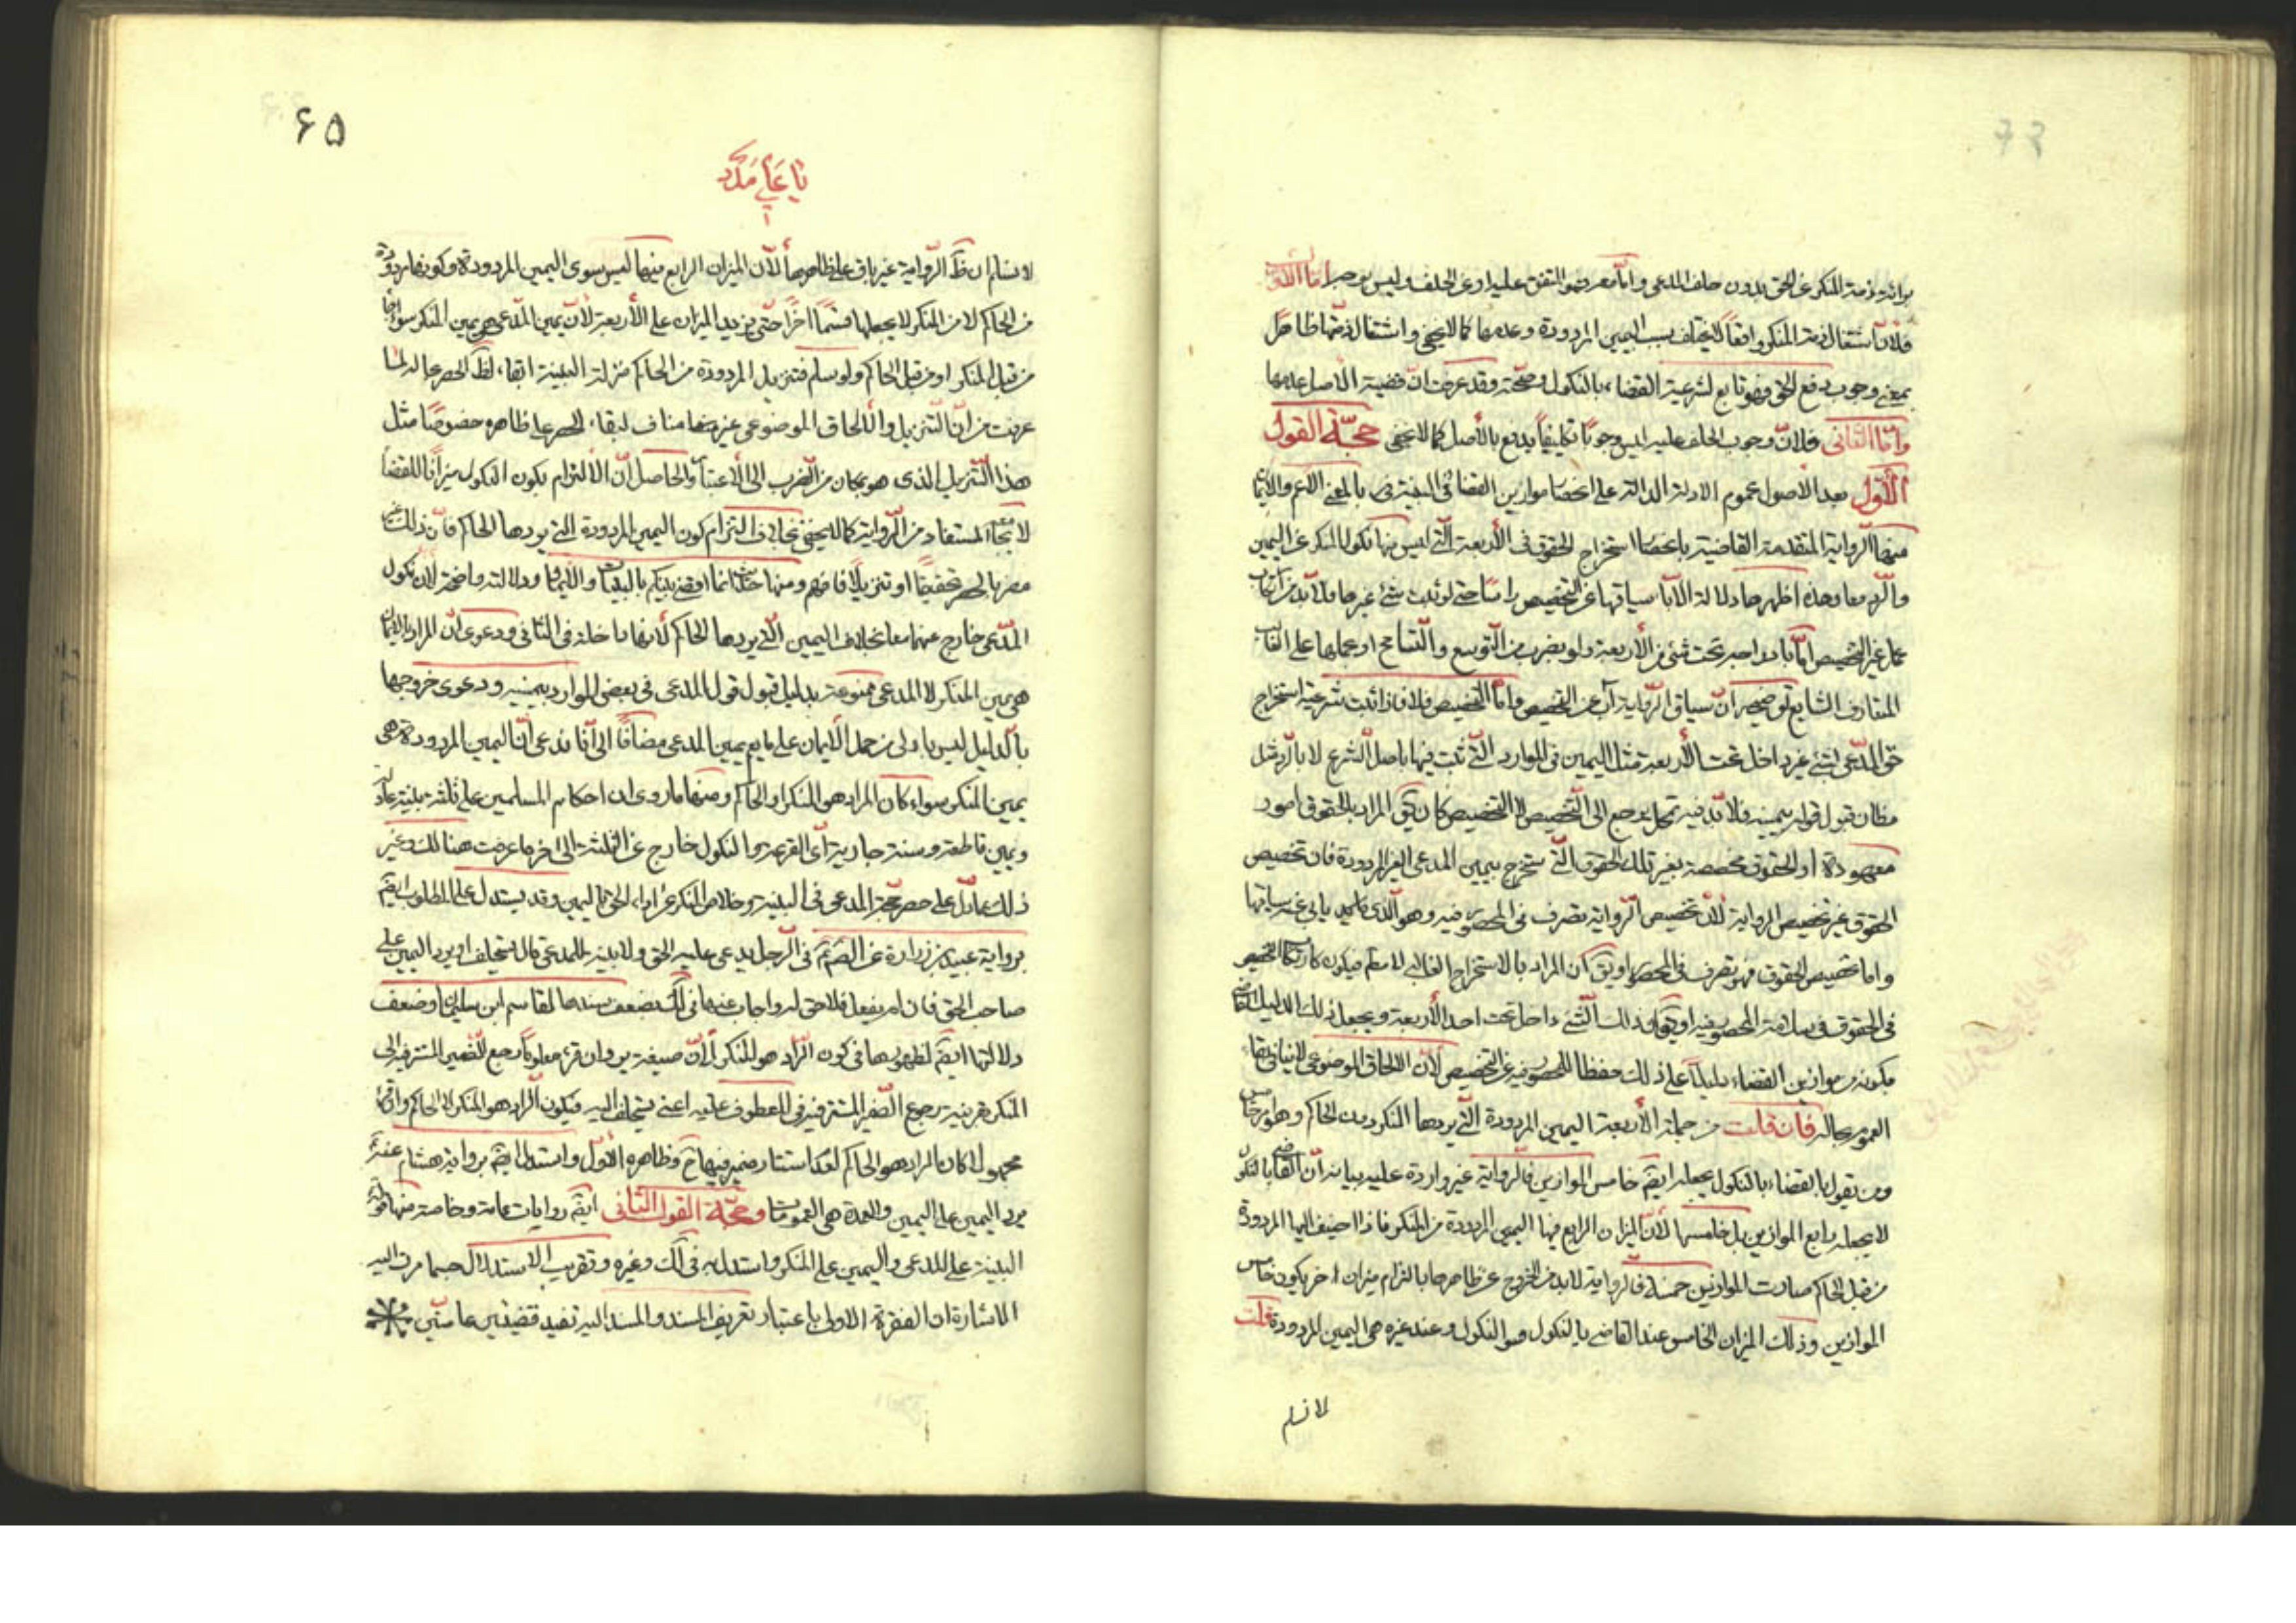 برائة ذمة المنكر عن الحق بدون حلف المدعى واما معه فهو المتفق عليه او عن الحلف وليس بوجه اما الاول
فلان اشتغال ذمة المنكر واقعا لا يختلف بسبب اليمين المردودة وعدمها كما لا يخفى واشتغال ذمتها ظاهرا
بمعنى وجوب دفع الحق فهو تابع لشرعية القضاء بالنكول وصحته وقد عرفت ان قضية الاصل عدمها
واما الثانى فلان وجوب الحلف عليه ليس وجوبا تكليفيا يدفع بالأصل كما لا يخفى حجة القول
الأول بعد الأصول عموم الادلة الدالة على انحصار موازين القضا فى البينة بالمعنى الأعم والأيمان
منها الرواية المتقدمة القاضية بانحصار استخراج الحقوق فى الأربعة التى ليس منها نكول المنكر عن اليمين
والرد معا وهذه اظهرها دلالة لاباء سياقها عن التخصيص راسا حتى لو ثبت شئ غيرها فلا بد من ارتكاب
عمل غير التخصيص اما بادراجه تحت شئ من الأربعة ولو بضرب من التوسع والتسامح او حملها على الغالب
المتعارف الشايع توضيحه ان سياق الرواية آب عن التخصيص واما التخصيص فلا فاذا ثبت شرعية استخراج
حق المدعى بشئ غير داخل تحت الأربعة مثل اليمين فى الموارد التى ثبت فيها باصل الشرع لا بالرد مثل
مظان قبول قوله بيمينه فلا بد فيه من محمل يرجع الى التخصص لا التخصيص كان يق المراد بالحقوق امور
معهودة او الحقوق مخصصة بغير تلك الحقوق التى تستخرج بيمين المدعى الغير المردودة فان تخصيص
الحقوق غير تخصيص الرواية لأن تخصيص الرواية تصرف فى المحصور فيه وهو الذى يابى عنه سياقها
واما تخصيص الحقوق فهو تصرف فى المحصور او يق ان المراد بالاستخراج الغالب لا
فى الحقوق فى سلامة المحصور فيه او يق ذلك الشئ داخل تحت احد الأربعة ويجعل ذلك الدليل القاضى
بكونه من موازين القضاء دليلا على ذلك حفظا للمحصور فيه عن التخصيص لأن الالحاق الموضوعى لا ينافى بقاء
العموم بحاله فان قلت من جملة الأربعة اليمين المردودة التى يردها المنكر دون الحاكم
ومن يقول بالقضاء بالنكول يجعله ايضا خامس الموازين فالرواية غير واردة عليه بيانه ان القاضى بالنكول
لا يجعله رابع الموازين بل خامسها لأن الميزان الرابع فيها اليمين المردودة من المنكر فاذا اضيف اليها المردودة
من قبل الحاكم صارت الموازين خمسة فالرواية لا بد من الخروج عن ظاهرها بالتزام ميزان اخر يكون خامس
الموازين وذلك الميزان الخامس عند القاضى بالنكول هو النكول وعند غيره هى اليمين المردودة قلت
لا نسلم
۶۵
يا على مدد
لا نسلم ان ظ الرواية غير باق على ظاهرها لأن الميزان الرابع منها ليس سوى اليمين المردودة وكونها مردودة
من الحاكم لا من المنكر لا يجعلها قسما اخرا حتى يزيد الميزان على الأربعة لأن يمين المدعى هو يمين المنكر سواء
من قبل المنكر او من قبل الحاكم ولو سلم فتنزيل المردودة من الحاكم منزلة البينة ابقاء لظ الحصر بحاله لما
عرفت من ان التنزيل والالحاق الموضوعى غير مناف لبقاء الحصر على ظاهره خصوصا مثل
هذا التنزيل الذى هو بمكان من القرب الى الاعتبار والحاصل ان الالتزام بكون النكول ميزانا للقضاء
لا يجامع المستفاد من الرواية كما لا يخفى بخلاف التزام كون اليمين المردودة التى يردها الحاكم فان ذلك
بالحصر تحقيقا او تنزيلا فافهم ومنها انما اقضى بينكم بالبينات والأيمان ودلالته واضحة لأن نكول
المدعى خارج عنهما معا بخلاف اليمين التى يردها الحاكم لأنها داخلة فى الثانى ودعوى ان المراد بالأيمان
هى يمين المنكر لا المدعى ممنوعة بدليل قبول قول المدعى فى بعض الموارد بيمينه ودعوى خروجها
بالدليل ليس باولى من حمل الأيمان على ما يعم يمين المدعى مضافا الى انا ندعى ان اليمين المردودة هى
يمين المنكر سواء كان المراد هو المنكر او الحاكم ومنها ما روى ان احكام المسلمين على ثلثة بينة عادلة
ويمين قاطعة وسنة جارية اى القرعة والنكول خارج عن الثلثة الى اخر ما عرفت هنالك وغير
ذلك مما دل على حصر حجة المدعى فى البينة وخلاص المنكر عن اداء الحق باليمين وقد يستدل على المطلوب ايضا
برواية عبيد بن زرارة عن الصم فى الرجل يدعى عليه الحق ولا بينة للمدعى قال يستحلف او يرد اليمين على
صاحب الحق فان لم يفعل فلا حق له واجاب عنها فى لك بضعف سندها لقاسم ابن سليمان وضعف
دلالتها ايضا لظهورها فى كون الراد هو المنكر لأن صيغة يرد وان قرء معلوما رجع الضمير المستتر فيه الى
المنكر بقرينة رجوع الضمير المستتر فى المعطوف عليه اعنى يستحلف اليه فيكون الراد هو المنكر لا الحاكم وان قرء
مجهولا كان المراد هو الحاكم لعدم استتار ضمير فيها ح وظاهره الأول واستدل ايضا برواية هشام عنه
يرد اليمين على اليمين والعمدة هى العمومات وحجة القول الثانى ايضا روايات عامة وخاصة منها قوله
البينة على المدعى واليمين على المنكر واستدل به فى لك وغيره وتقريب الاستدلال حسبما مرت اليه
الاشارة ان الفقرة الاولى باعتبار تعريف المسند والمسند اليه تفيد قضيتين عامتين